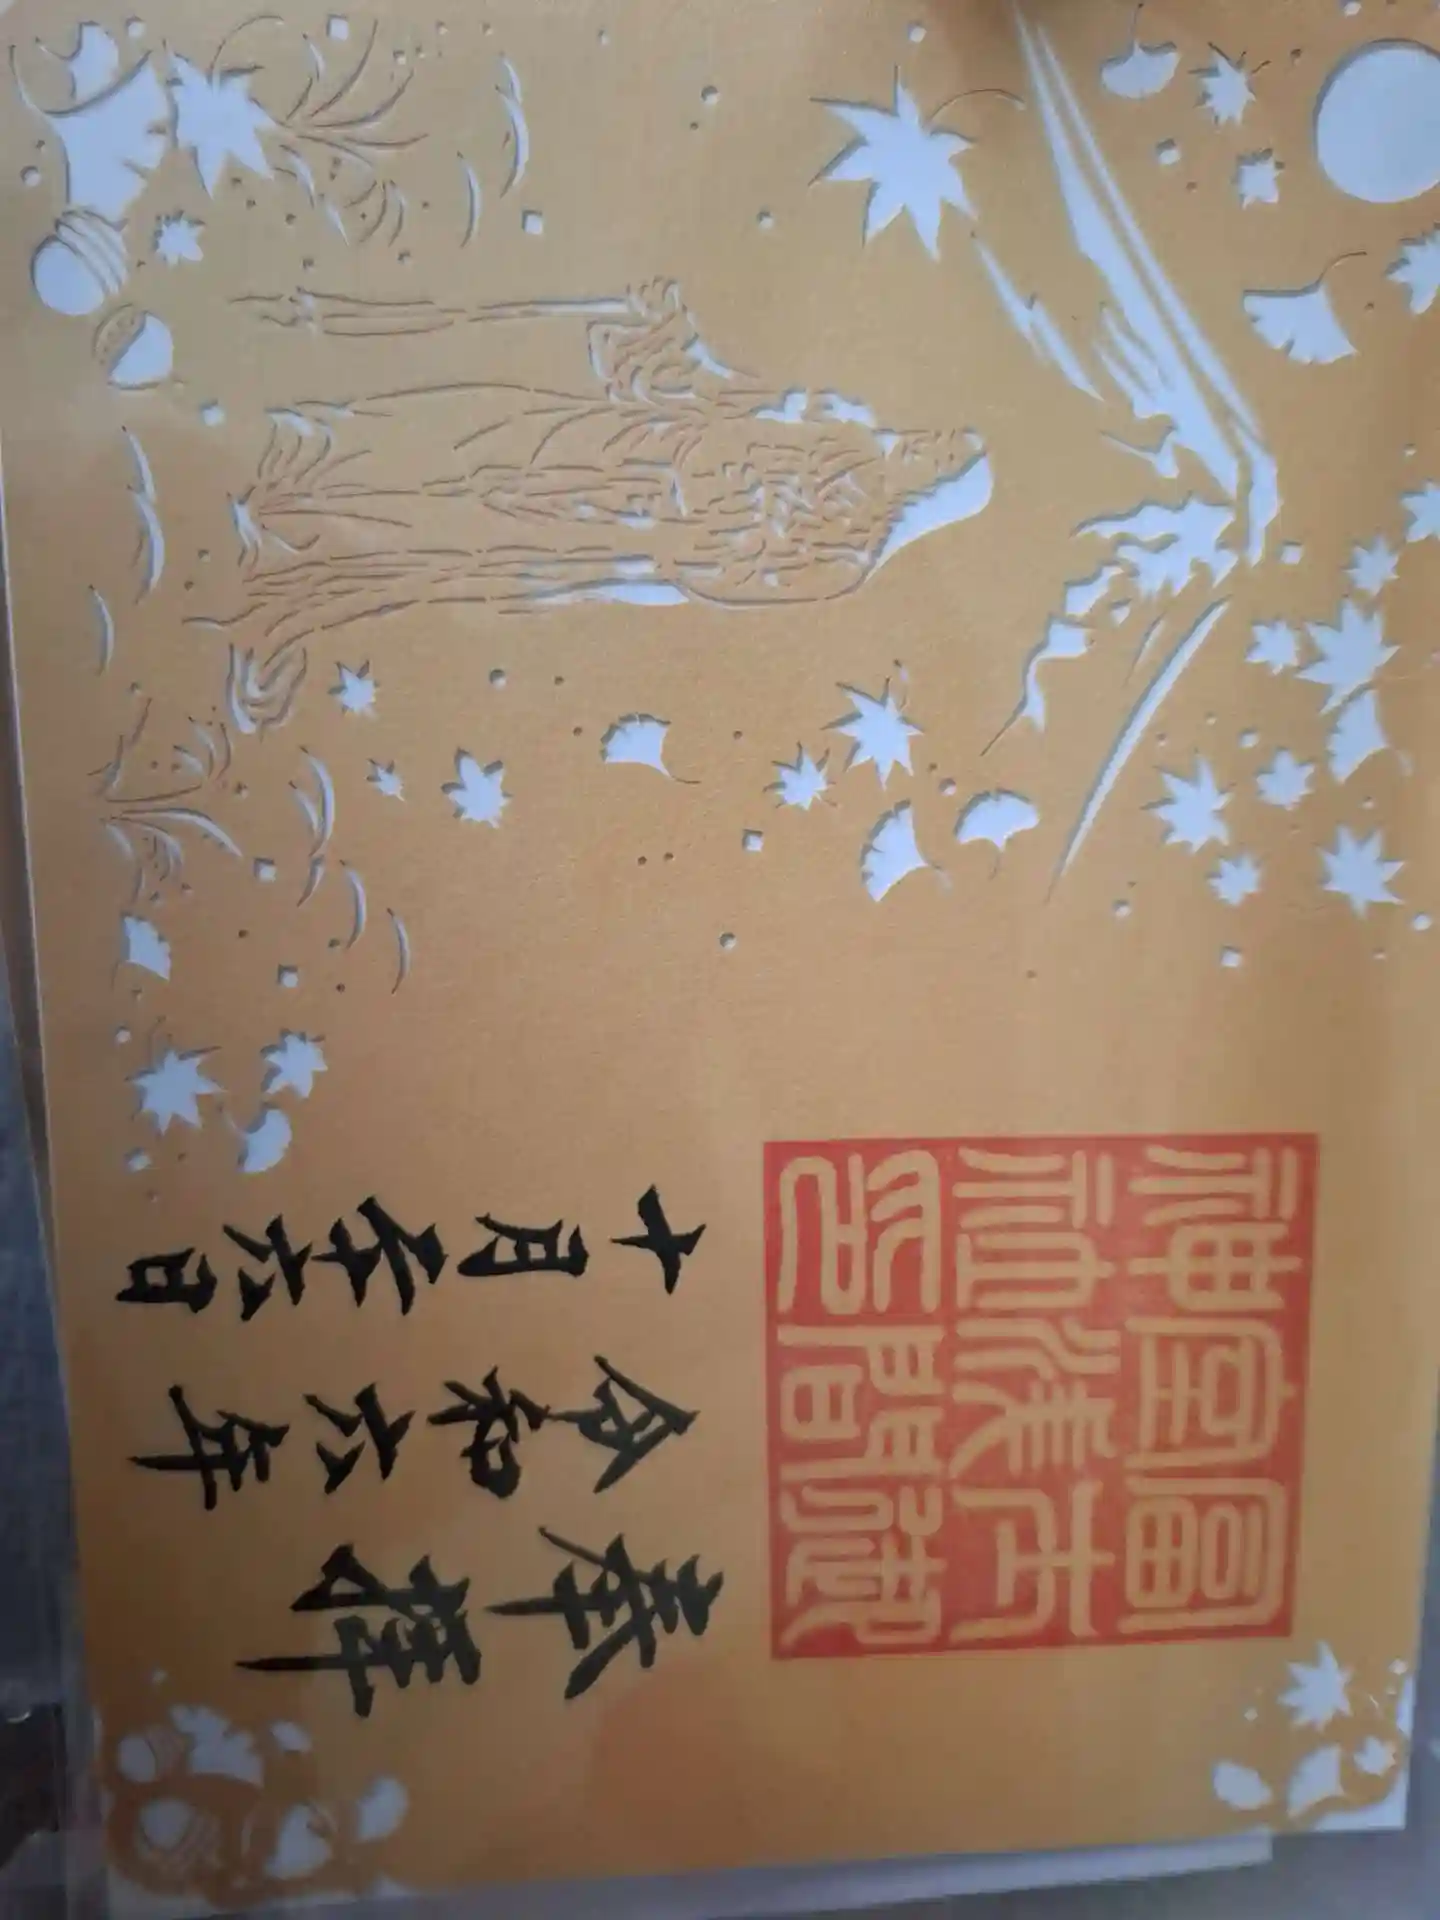 冨士御
室浅間
神社印
奉拝
令和六年
十月二十六日